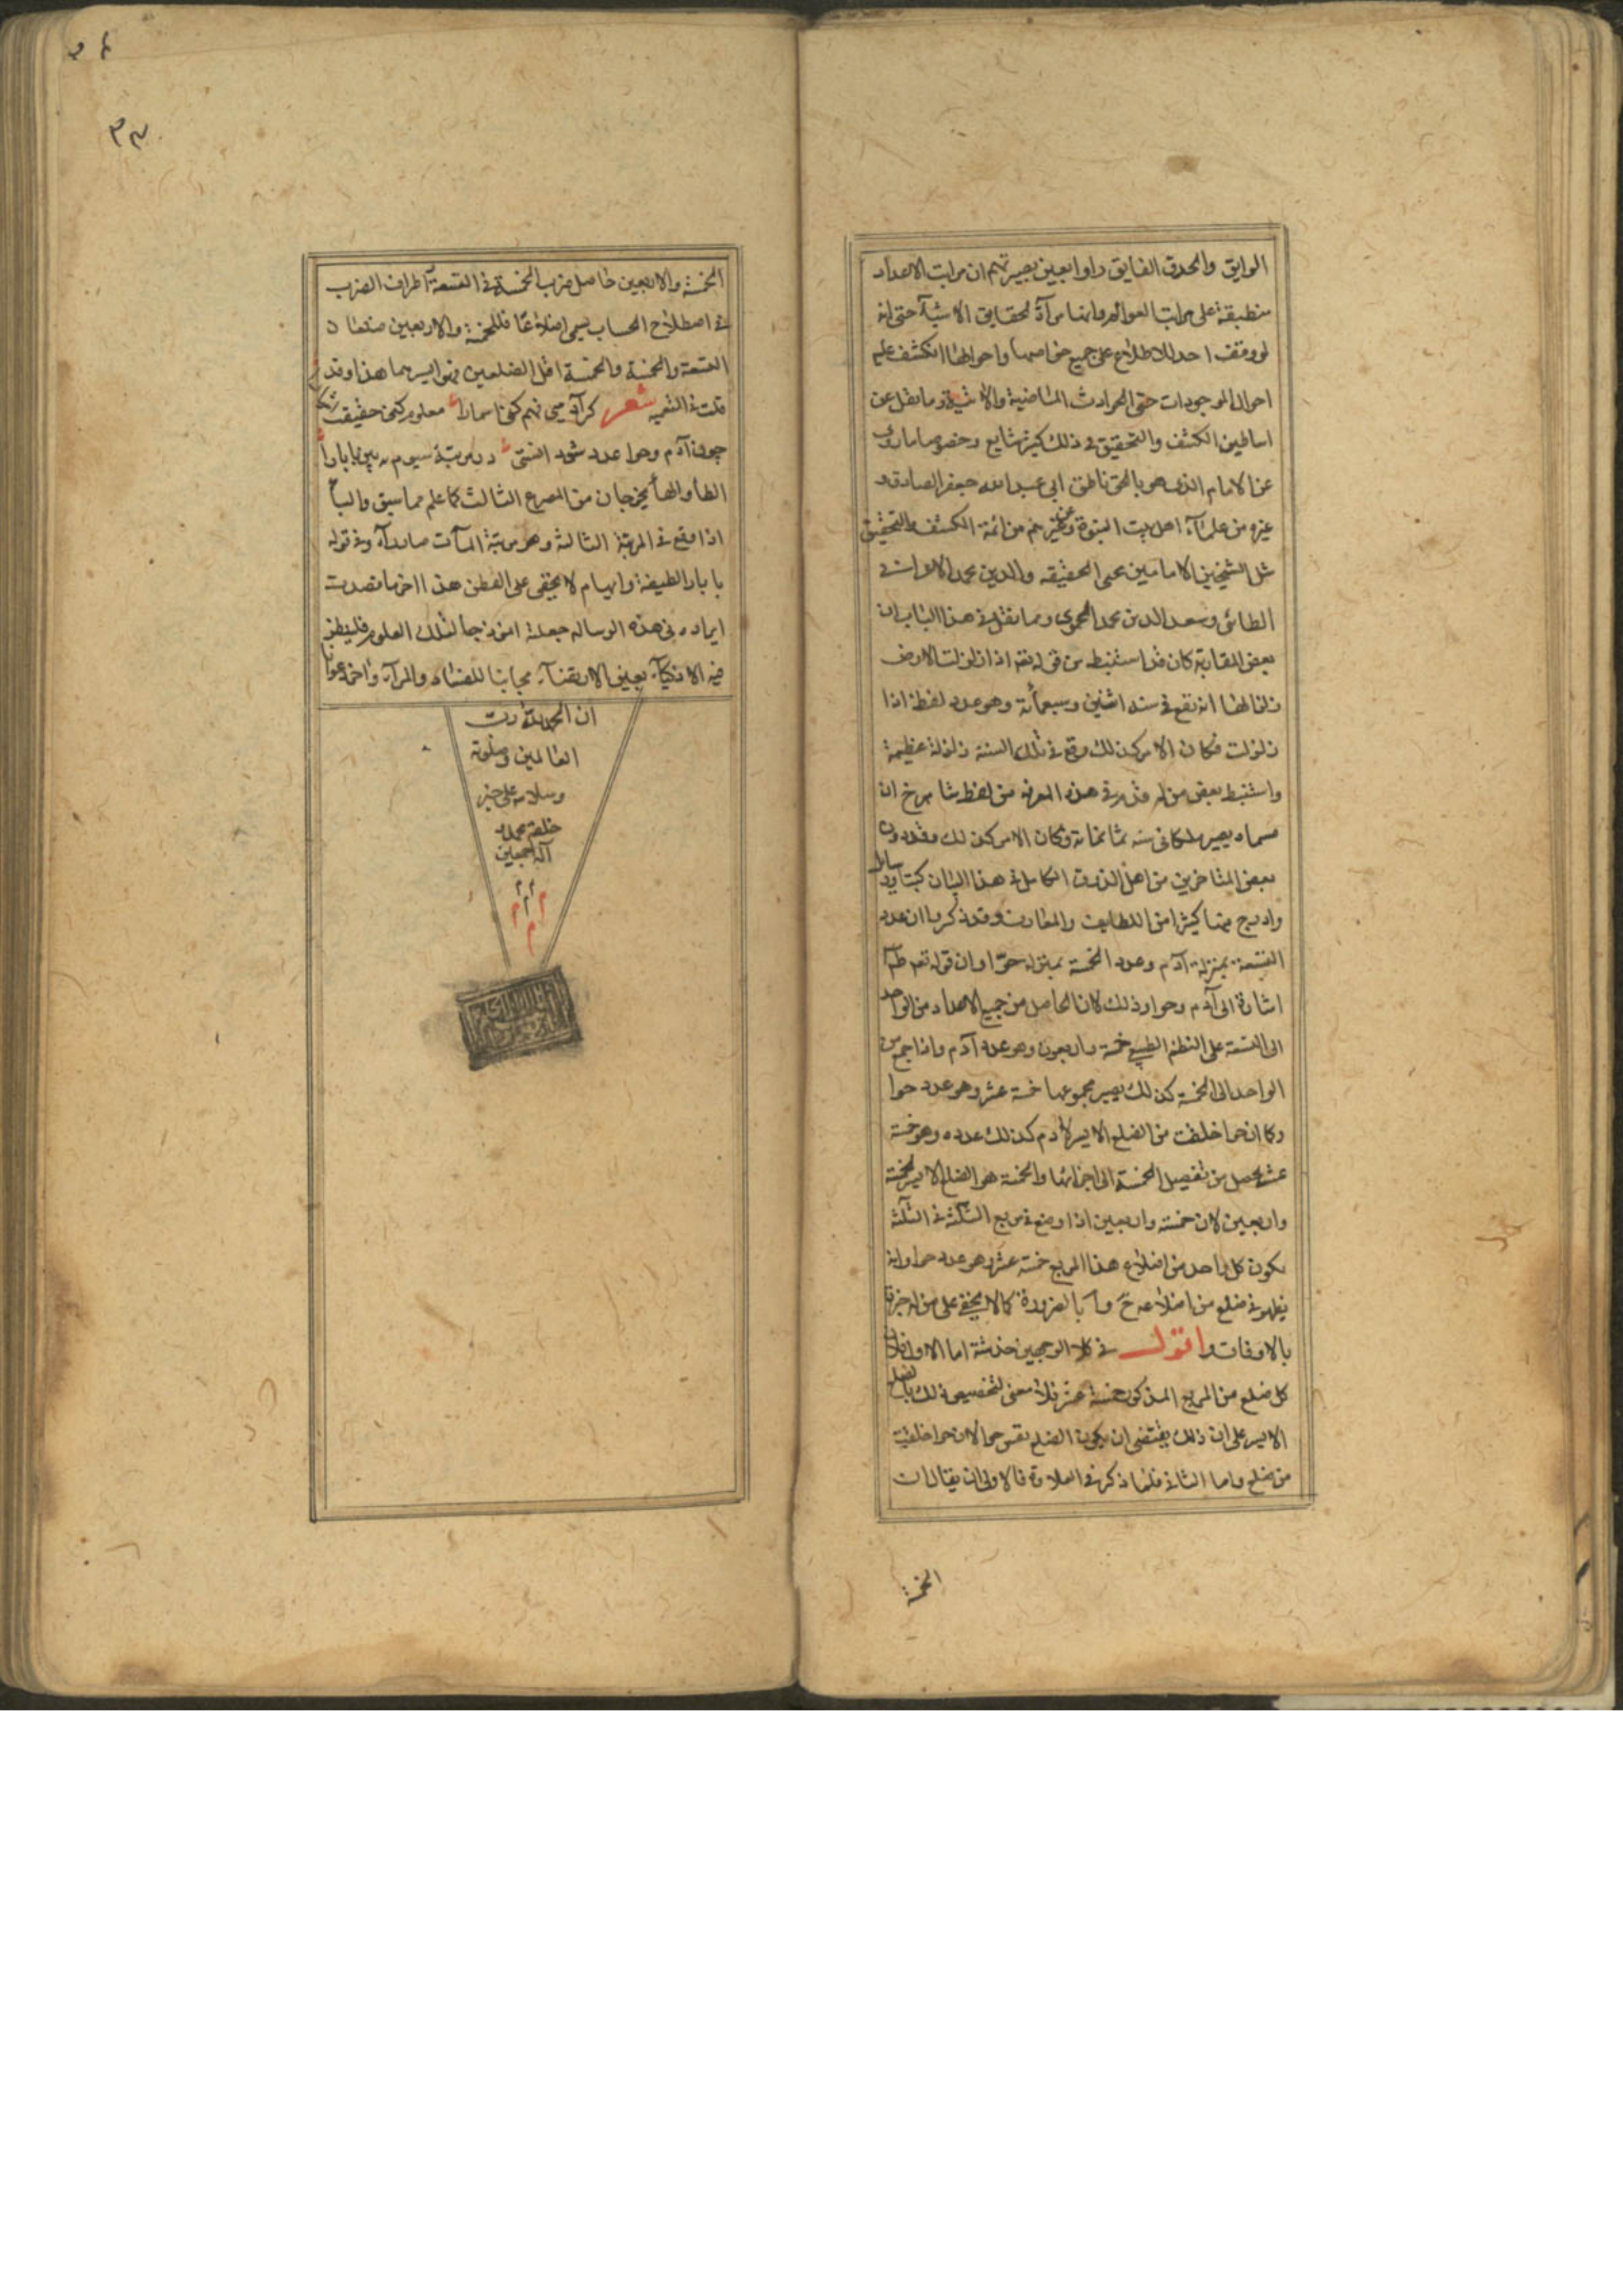 الرايق والحدق الفايق راوا بعين بصيرتهم ان مراتب الاعداد
منطبقة على مراتب العوالم وانها مرآة لحقايق الاشيآء حتى انه
لو وفقف احد للاطلاع على جميع خواصها واحوالها انكشف عليه
احوال الموجودات حتى الحوادث الماضية والاتية وما نقل عن
اساطين الكشف والتحقيق فى ذلك كثير شايع وخصوصا ما روى
عن الامام الذى هو بالحق ناطق ابى عبد الله جعفر الصادق و
غيره من علمآء اهل بيت النبوة وعن غيرهم من ائمة الكشف والتحقيق
مثل الشيخين الامامين محى الحقيقه والدين محمد الاعرابى
الطائى وسعد الدين محمد الحموى ومما نقل فى هذا الباب ان
بعض المغاربة كان قد استنبط من قوله تعه اذا زلزلت الارض
زلزالها انه يقع فى سنه اثنين وسبعمأئة وهو عدد لفظ اذا
زلزلت فكان الامر كذلك وقع فى تلك السنة زلزلة عظيمة
واستنبط بعض من له قدم فى هذه المعرفه من لفظ شاهرخ ان
مسماه يصير ملكا فى سنه ثمانمائة وكان الامر كذلك وقد دون
بعض المتاخرين من اهل الذوق الكامل فى هذا الشان كتبا ورسائل
وادرج فيها كثيرا من اللطايف والمعارف وقد ذكروا ان عدد
التسعة بمنزلة آدم وعدد الخمسة بمنزله حوّا وان قوله تعه طه
اشارة الى آدم وحوا وذلك لان الحاصل من جميع الاعداد من الواحد
الى التسعة على النظم الطبيعى خمسة واربعون وهو عدد آدم واذا جمع من
الواحد الى الخمسة كذلك يصير مجموعها خمسة عشر وهو عدد حوا
وكما ان حوا خلقت من الضلع الايسر لآدم كذلك عدده وهو خمسة
عشر يحصل من تفصيل الخمسة الى اجزائها والخمسة هو الضلع الايسر لخمسة
واربعين لان خمسة واربعين اذا وضع فى مربع الثلثة فى الثلثة
يكون كل واحد من اضلاع هذا المربع خمسة عشر وهو عدد حوا وانه
يظهر فى ضلع من اضلاعه ح و ا بالضرورة كما لا يخفى على من له خبرة
بالاوفاق واقول فى كلا الوجهين خدشة اما الاول فلان
كل ضلع من المربع المذكور خمسة عشر فلا معنى لتخصيص ذلك بالضلع
الايسر على ان ذلك يقتضى ان يكون الضلع نفس حوا لان حوا خلقت
من ضلع واما الثانى فلما ذكر فى العلاوة فالاولى ان يقال ان
الخمسة
الخمسة والاربعين حاصل ضرب الخمسة فى التسعة و اطراف الضرب
فى اصطلاح الحساب يسمى اضلاعا فللخمسة والاربعين ضلعان
التسعة والخمسة والخمسة اقل الضلعين فهو ايسرهما هذا وقد
قلت فى التعميه شعر كرآدمى فهم كن اسما را معلوم كن حقيقت
چون آدم وحوا عدد شود در مرتبة سيوم ببين بابا را
الطأ والهأ يخرجان من المصرع الثالث كما علم مما سبق والبأ
اذا وقع فى المرتبة الثالثة وهو مرتبة المآت صار رآء وفى قوله
بابا را لطيفة وايهام لا يخفى على الفطن هذا آخر ما قصدت
ايراده فى هذه الرساله جعلته انموذجا لتلك العلوم فلينظر
فيه الاذكيآء بعين الارتضآء مجانبا للعناد والمرآء وآخر دعوانا
ان الحمد لله رب
العالمين وصلوته
وسلامه على خير
خلقه محمد و
آله اجمعين
م م م
٣٣